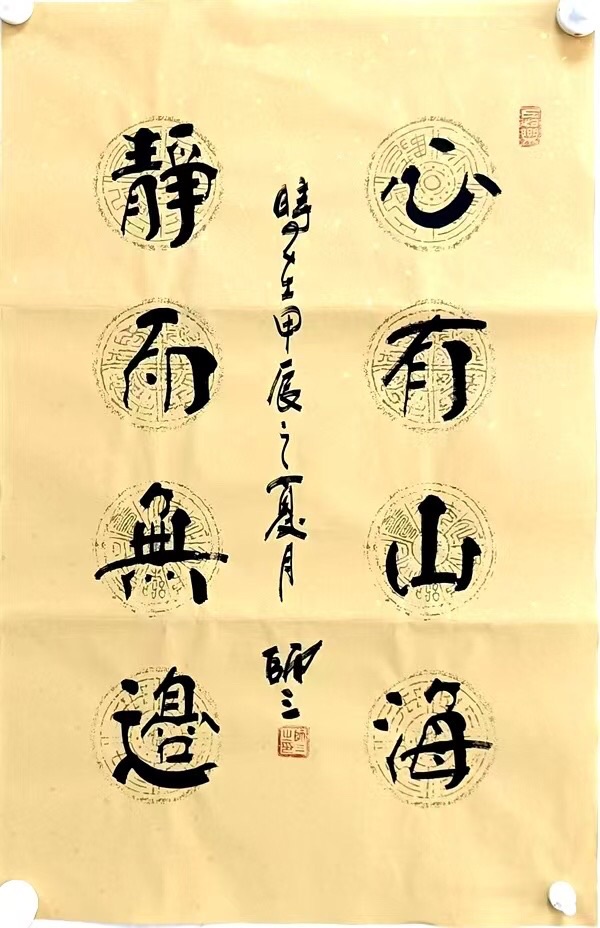 心有山海
時在甲辰之夏月
師三
靜而無邊